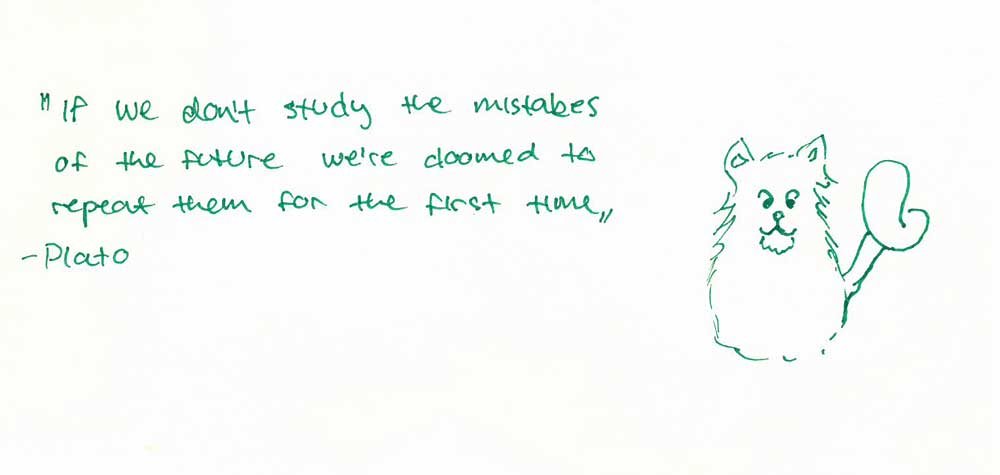 "If we don't study the mistakes
of the future we're doomed to
repeat them for the first time„
-Plato